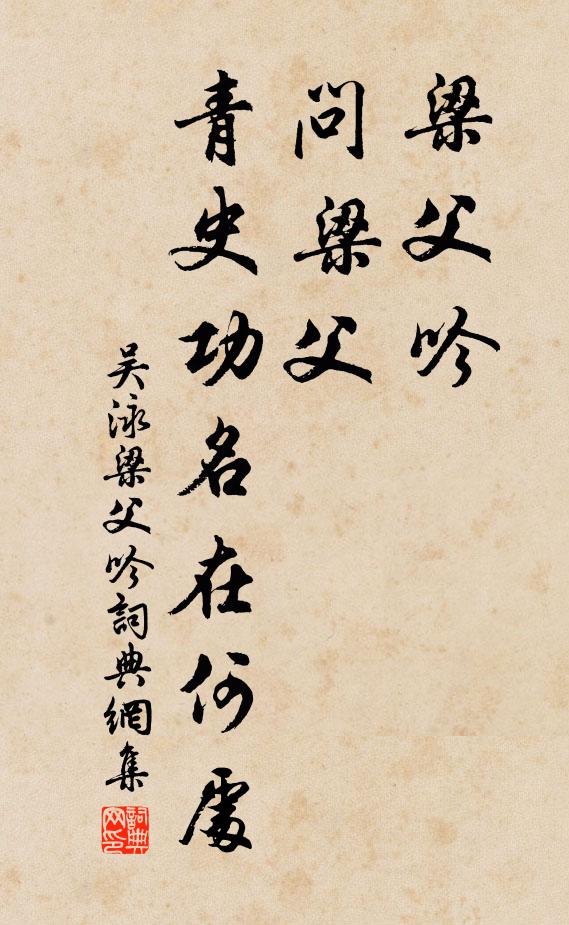 梁父吟
問梁父
青史功名在何處
吴泳梁父吟詞典網集
詞典
网印